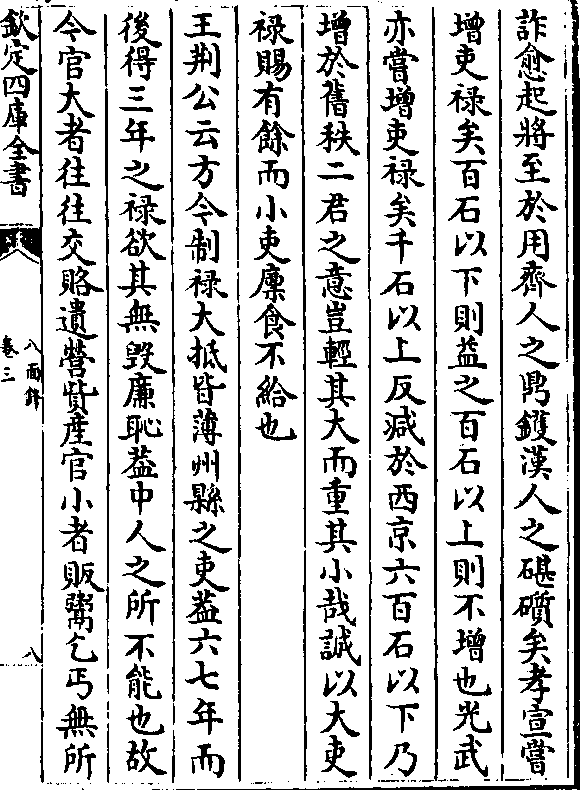 詐愈起將至於用齊人之鼎鑊漢人之碪礩矣孝宣嘗
增吏禄矣百石以下則益之百石以上則不增也光武
亦嘗增吏禄矣千石以上反减於西京六百石以下乃
增於舊秩二君之意豈輕其大而重其小哉誠以大吏
禄賜有餘而小吏廩食不給也
王荆公云方今制禄大抵皆薄州縣之吏葢六七年而
後得三年之禄欲其無毁廉恥葢中人之所不能也故
今官大者往往交賂遺營貲產官小者販鬻乞丐無所
欽定四庫全書
八面鋒
卷三
八